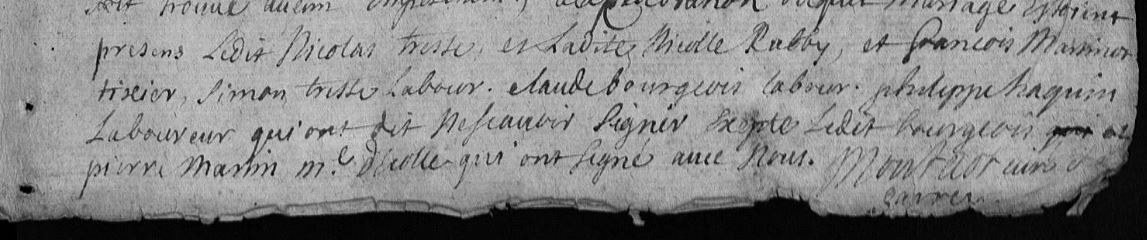 soit trouvé aucun empeschement, a la celebration duquel mariage estoient
presens Ledit Nicolas tresse, et Ladite Nicolle Rabby, et francois Martinet
tixier, Simon tresse Labour. claude bourgeois labour. philippe haquin
Laboureur qui ont dit Nescavoir Signer Exepte Ledit bourgeois et
pierre Martin m.e decolle qui ont signé avec Nous. curé